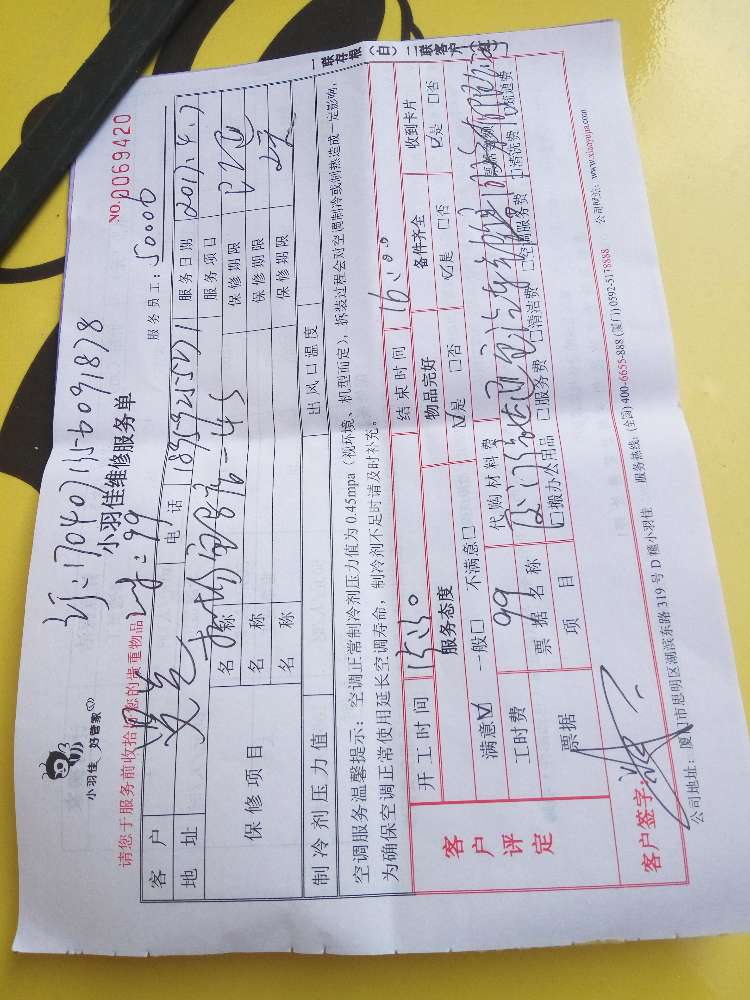 小羽佳 好管家
17040713560918 98
小羽佳维修服务单
NO. 0069420
请您于服务前收拾好您的贵重物品
99
服务员工: 50006
客户
电话
服务日期 2017.4.7
地址
服务项目
保修项目
名称
保修期限
名称
保修期限
名称
保修期限
制冷剂压力值
出风口温度
空调服务温馨提示: 空调正常制冷剂压力值为 0.45mpa（视环境、机型而定），拆装过程会对空调制冷或制热造成一定影响，
为确保空调正常使用延长空调寿命，制冷剂不足时请及时补充。
客户评定
开工时间 15:50
结束时间 16:00
服务态度
物品完好
备件齐全
收到卡片
满意☑ 一般□ 不满意□
☑是 □否
☑是 □否
☑是 □否
工时费 99
代购材料费
票据
票据名称
项目
□搬办公用品 □服务费 □清洁费 □空调服务费 □清洗费 □疏通费
客户签字:
公司地址: 厦门市思明区湖滨东路 319 号 D 幢小羽佳
服务热线: (全国)400-6655-888 (厦门)0592-5178888
公司网站: www.xiaoyujia.com
一联存根（白）二联客户